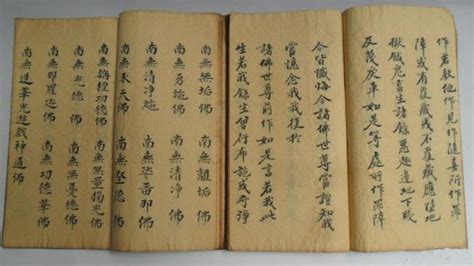 作若教他作見作隨喜所作罪
障或有覆藏或不覆藏應墮地
獄餓鬼畜生諸餘惡趣邊地下賤
及蔑戾車如是等處所作罪障
今皆懺悔今諸佛世尊當證知我
當憶念我我復於
諸佛世尊前作如是言若我此
生若我餘生曾行布施或守淨
南無無垢佛 南無離垢佛
南無勇施佛 南無清淨佛
南無清淨施 南無娑留那佛
南無水天佛 南無堅德佛
南無栴檀功德佛 南無無量掬光佛
南無光德佛 南無無憂德佛
南無那羅延佛 南無功德華佛
南無蓮華光遊戲神通佛